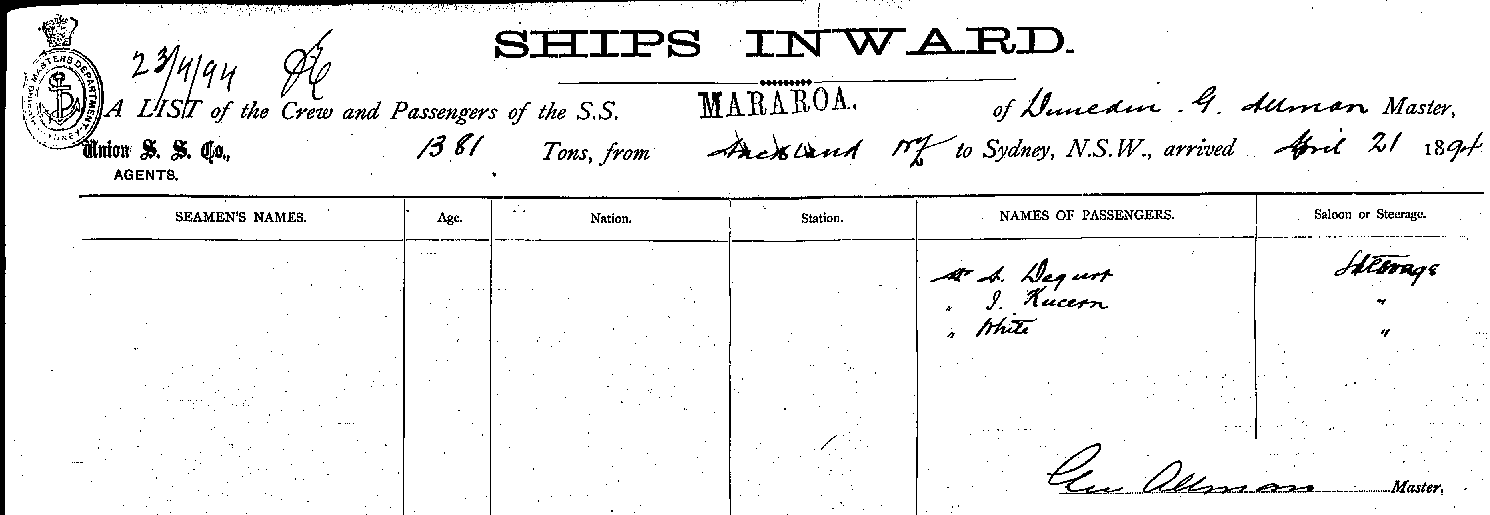 SHIPS INWARD.
23/4/94
MASTERS DEPARTMENT
A LIST of the Crew and Passengers of the S.S. MARAROA. of Dunedin G. Allman Master,
Union S. S. Co., 1381 Tons, from Auckland NZ to Sydney, N.S.W., arrived April 21 1894
AGENTS.
SEAMEN'S NAMES. Age. Nation. Station. NAMES OF PASSENGERS. Saloon or Steerage.
Mr A. Steerage
" J. "
" White "
Geo Allman Master,